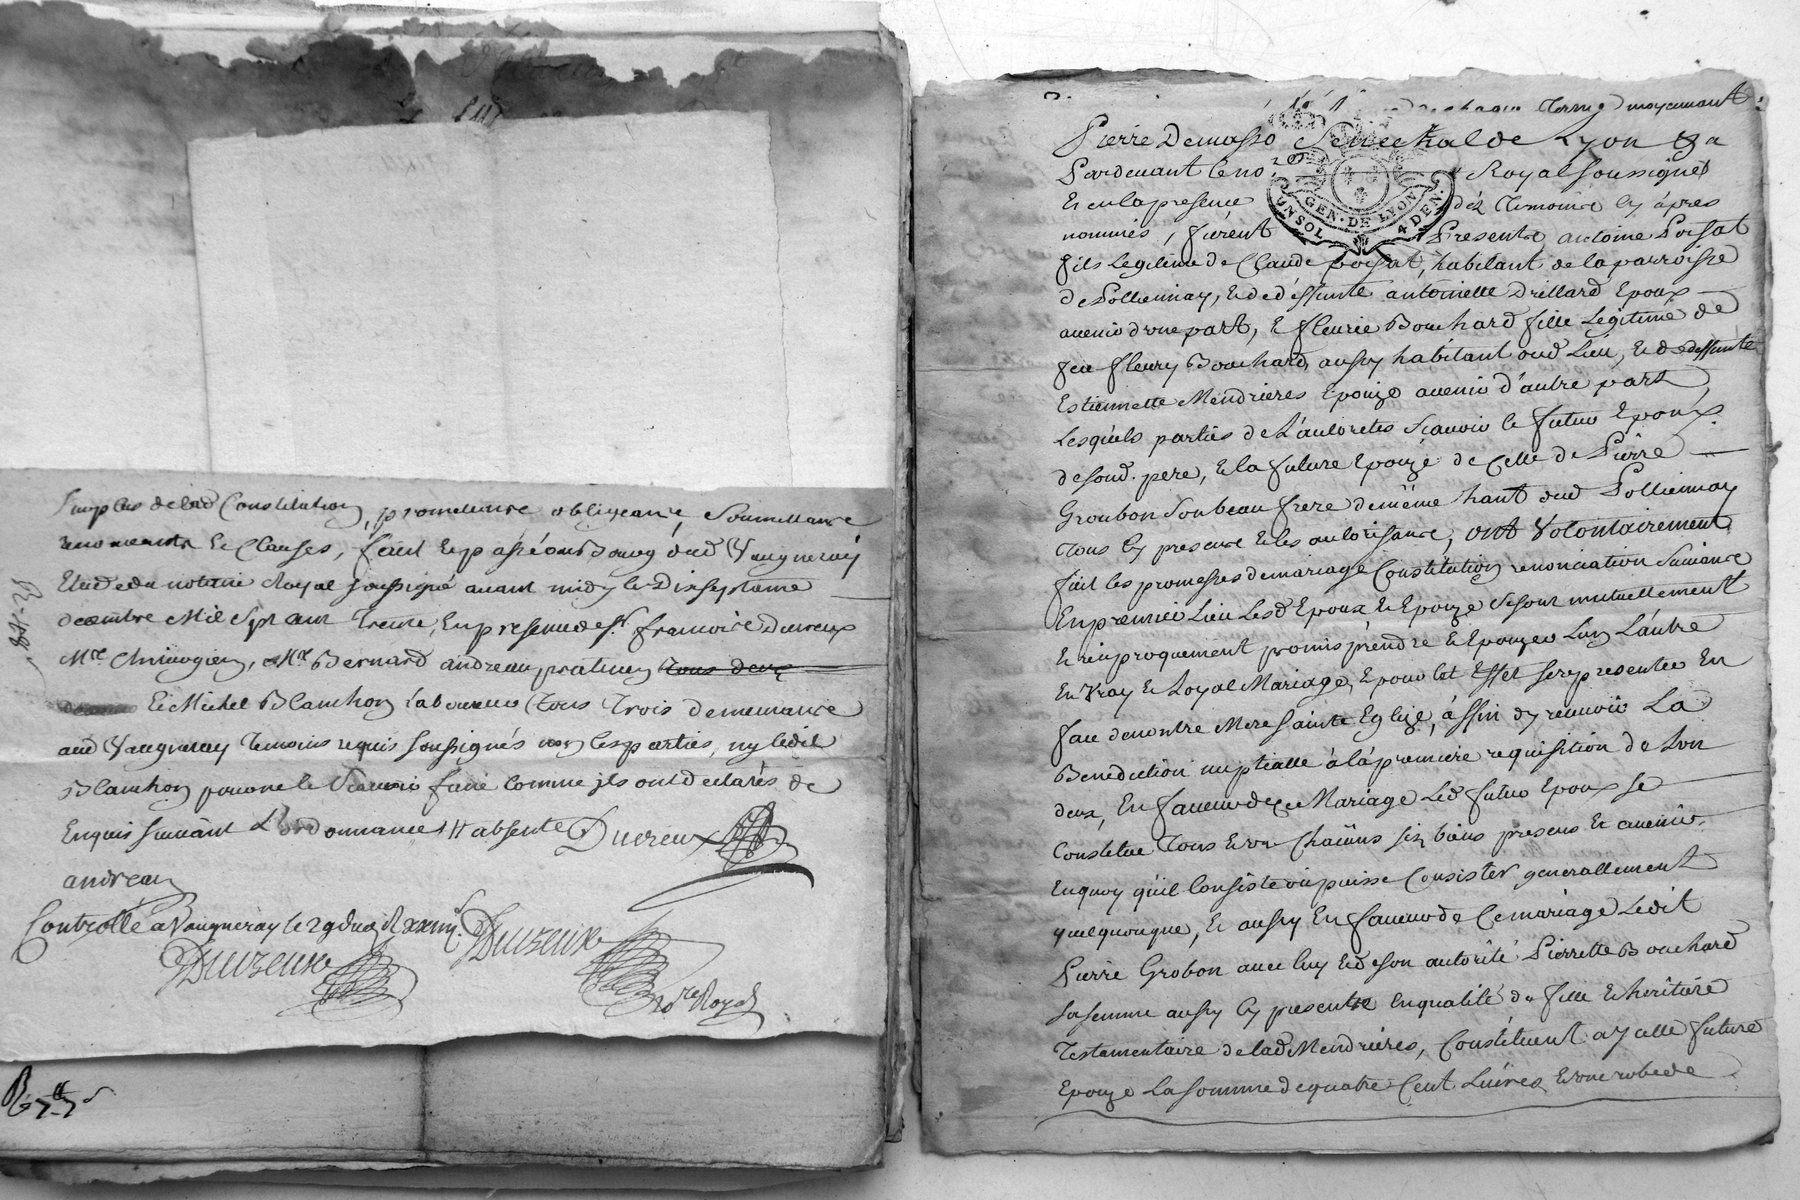 Surplus de lad Constitution, promettence obligeance, Soumettance
renonceante Et Clauses, faict Et passé au Bourg dud Vaugneray
Etude du notaire Royal soussigné avant midy le Dixseptieme
decembre Mil Sept cent Trente, En presence de Sr francoise Ducreux
Mre Chirurgien, Mr Bernard andreau praticien tous deux
Et Michel Blanchon laboureur tous Trois demeurance
aud Vaugneray Temoins requis soussignés non les parties, ny ledit
Blanchon pour ne le Scavoir faire Comme jls ont declarés de
Enquis suivant L'ordonnance absente Ducreux
andreau
Controllé a Vaugneray le 29
Ducreux Ducreux
No.re Royal
R 7
Terme moyennant
Pierre Demasso Senechal de Lyon
Pardevant le no.re Royal soussigné
Et en la presence dés Temoins cy áprés
nommés, fûrent Presents antoine Poisat
fils Legitime de Claude poisat, habitant de la parroisse
de Pollionnay, Et de déffunte antoinette Drillard Epoux
avenir d'une part, Et fleurie Bouchard fille Legitime de
feu fleury Bouchard, aussy habitant dud Lieu, Et de deffunte
Estiennette Mendrieres Epouze avenir d'autre part
Lesquels parties de L'autorites Scavoir le futur Epoux
de sond. pere, Et la future Epouze de Celle de Pierre
Groubon Son beau frere de même hant dud Pollionnay
Tous Cy presence Et les autorisance, ont Volontairement
fait les promesses de mariage Constitution renonciation Suivance
En premier Lieu Lesd Epoux Et Epouze Se sont mutuellement
Et reciproquement promis prendre Et Epouzer Lun L'autre
En Vray Et Loyal Mariage, Et pour Cet Effet se representer En
face de nottre Mere Sainte Eglize, áffin dy recevoir La
Benediction nuptialle á lá premiere requisition de Lun
deux, En faveur de Ce Mariage Led futur Epoux se
Constitue Tous Et un Chacuns sez biens presens Et avenir
En quoy qu'il Consiste ou puisse Consister generallement
quelquonque, Et aussy En faveur de Ce mariage Ledit
Pierre Grobon avec luy Et de son autorité Pierrette Bouchard
sa femme aussy Cy presente En qualité de fille Et heritiére
Testamentaire de lad Mendriéres, Constituent a ycelle future
Epouze La somme de quatre Cent Livres Et une robe de
GEN. DE LYON
UN SOL 4 DEN.